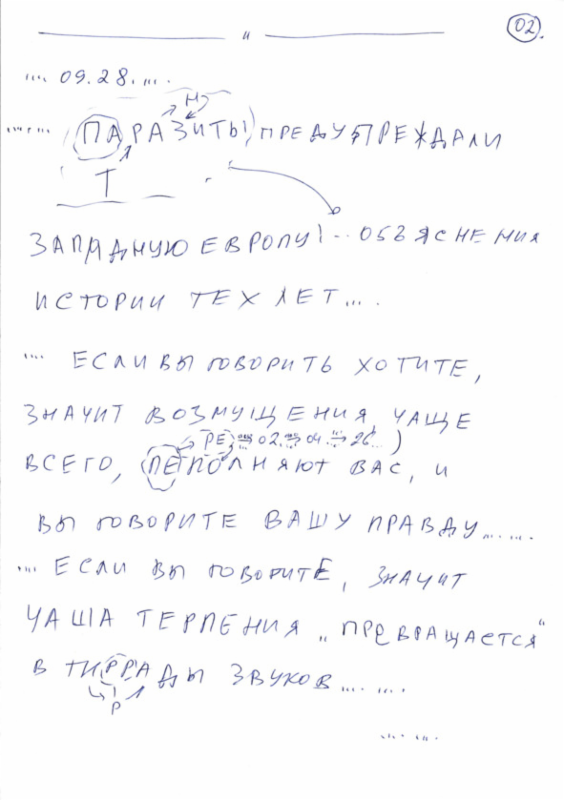 02.
"
.... 09.28. ....
Н
...... ПАРАЗИТЫ, ПРЕДУПРЕЖДАЛИ
Т
ЗАПАДНУЮ ЕВРОПУ! .. ОБЪЯСНЕНИЯ
ИСТОРИИ ТЕХ ЛЕТ....
.... ЕСЛИ ВЫ ГОВОРИТЬ ХОТИТЕ,
ЗНАЧИТ ВОЗМУЩЕНИЯ, ЧАЩЕ
РЕ, 02. 04. 26...)
ВСЕГО, ПЕПОЛНЯЮТ ВАС, И
ВЫ ГОВОРИТЕ ВАШУ ПРАВДУ......
.... ЕСЛИ ВЫ ГОВОРИТЕ, ЗНАЧИТ
ЧАША ТЕРПЕНИЯ „ПРЕВРАЩАЕТСЯ"
В ТИРРАДЫ ЗВУКОВ.......
Р